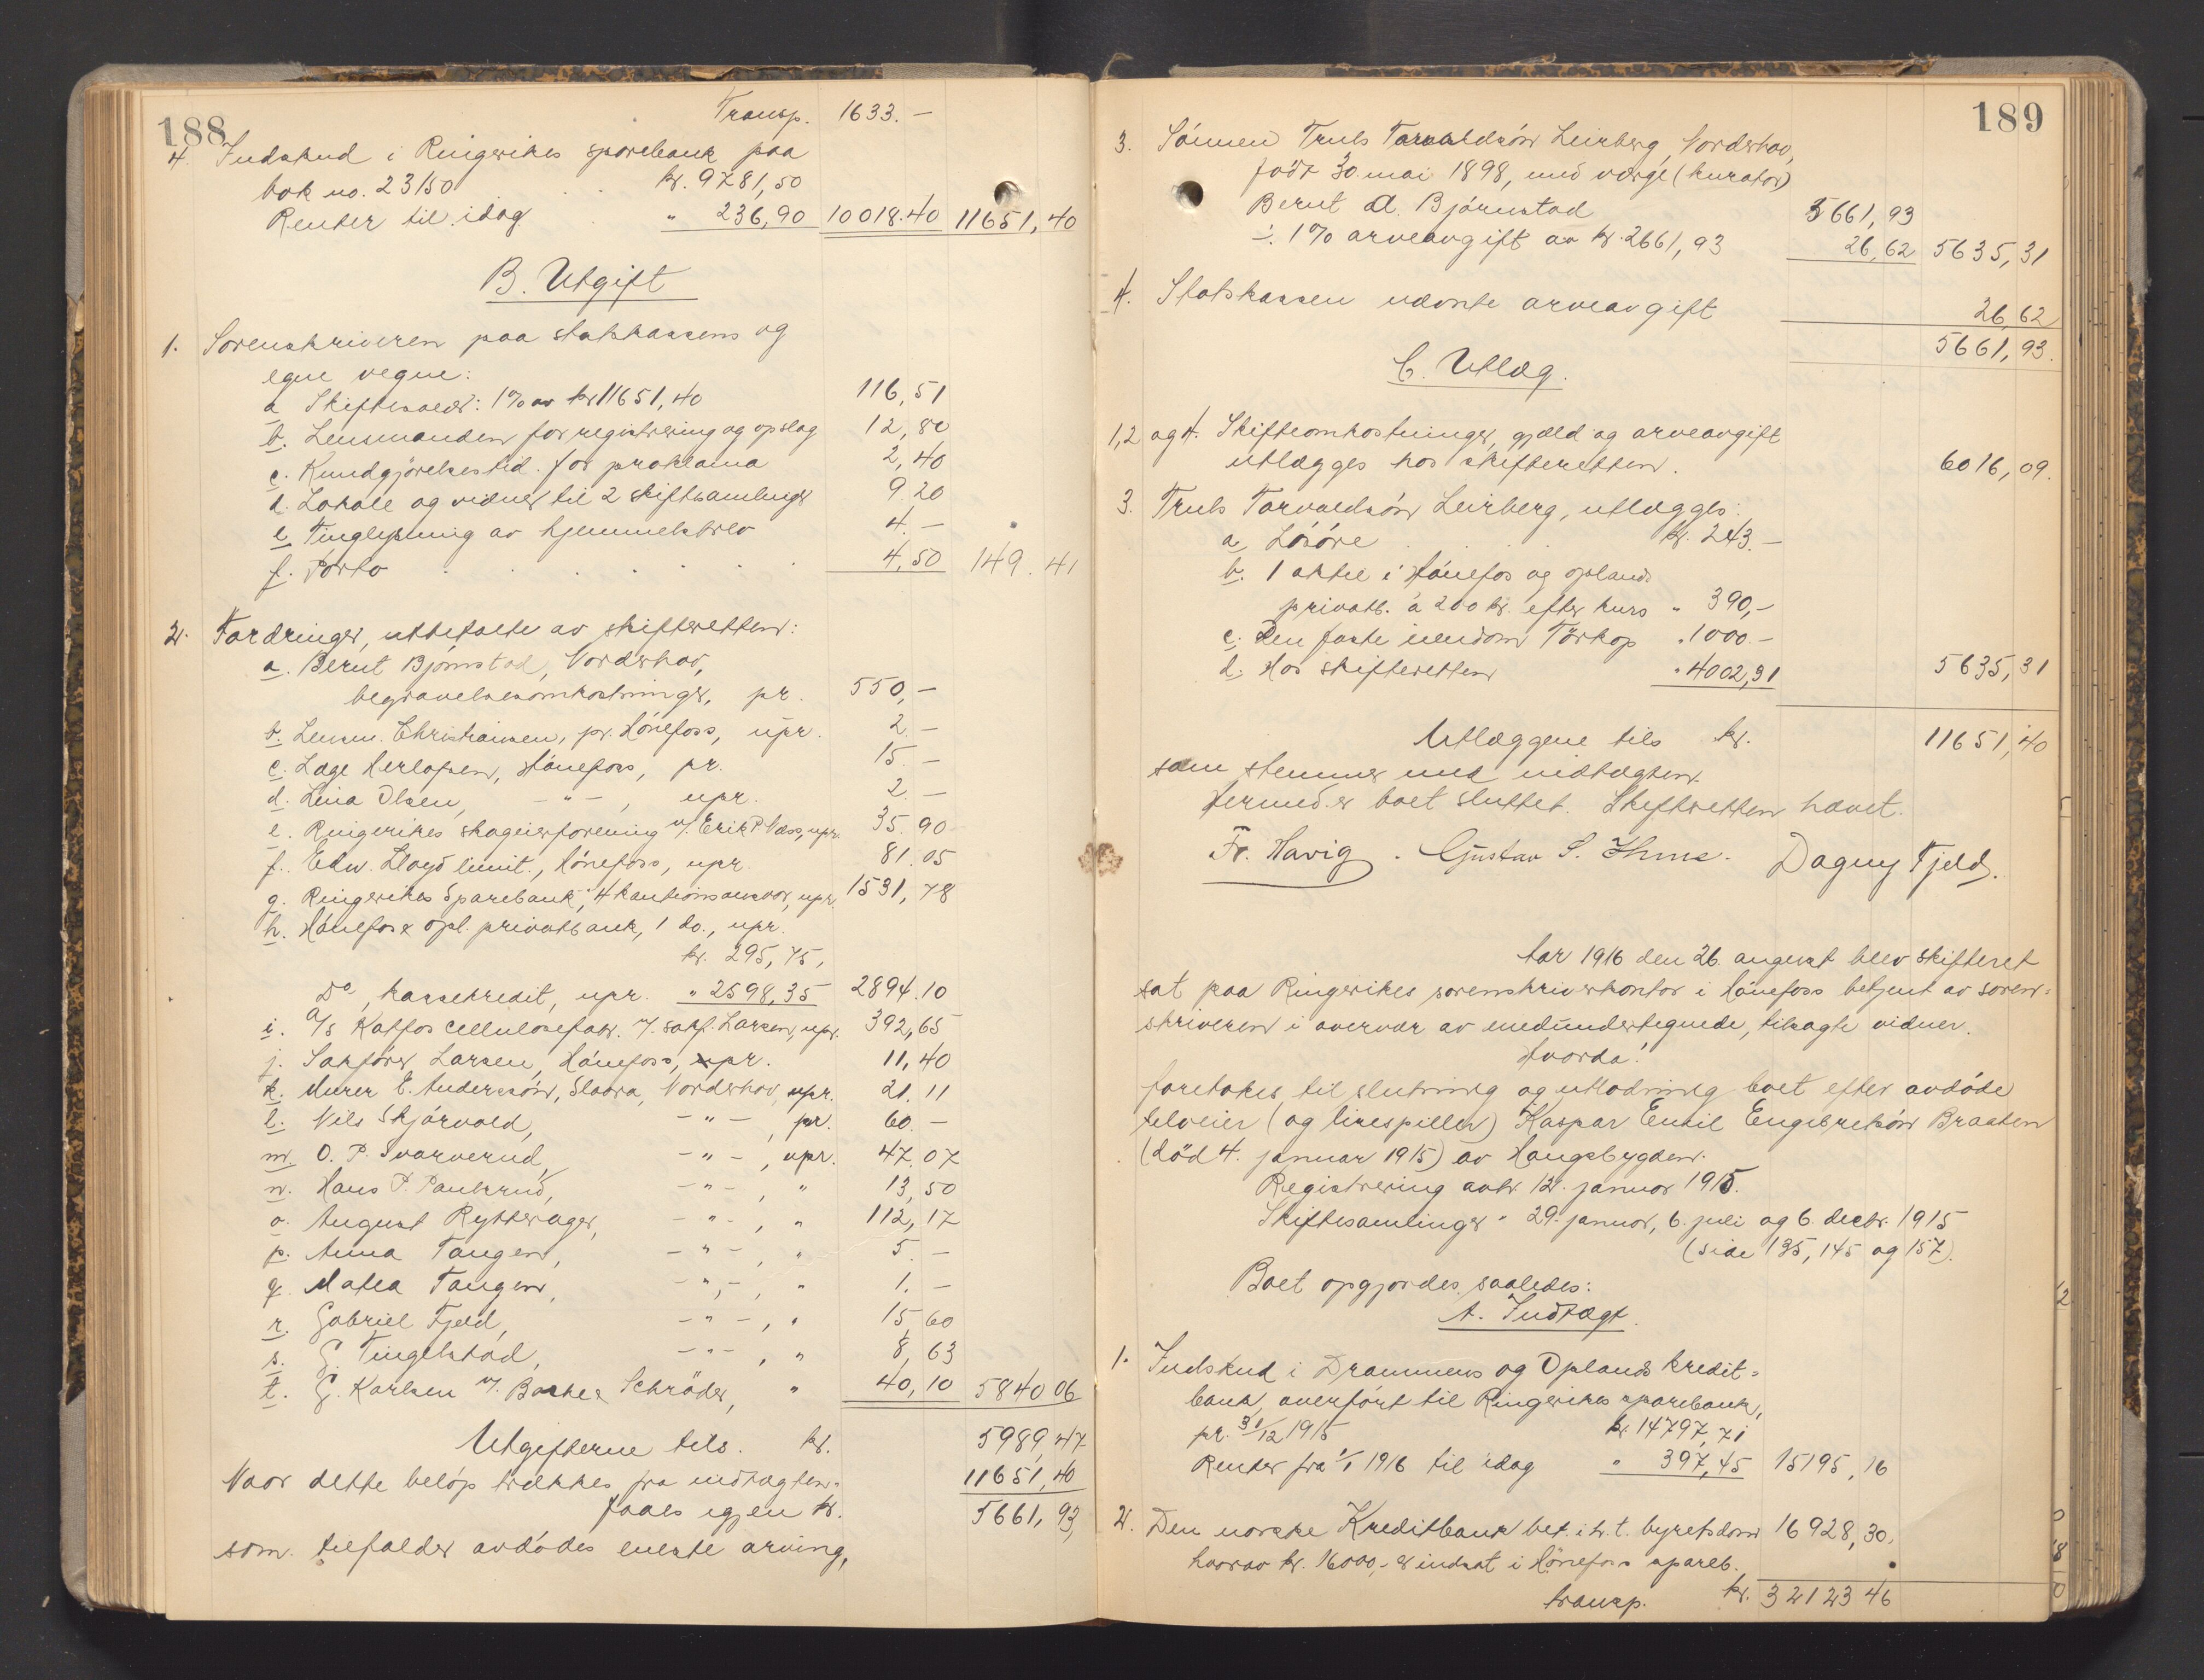 188
Transp. 1633.—
4. Indskud i Ringerikes sparebank paa
bok no. 23150 kr. 9781,50
Renter til idag " 236,90 10018.40 11651,40
B. Utgift
1. Sorenskriveren paa statskassens og
egne vegne:
a Skiftesaler: 1% av kr 11651,40 116,51
b. Lensmanden for registrering og opslag 12,80
c. Kundgjörelsestid. for proklama 2,40
d. Lokale og vidner til 2 skiftesamlinger 9.20
e. Tinglysning av hjemmelsbrev 4.—
f. Porto 4,50 149.41
2. Fordringer, utbetalte av skifteretten:
a. Bernt Björnstad, Norderhov,
begravelsesomkostninger, pr. 550,—
b. Lensm. Christiansen, pr. Hönefoss, upr. 2.—
c. Læge Herlofsen, Hönefoss, pr. 15.—
d. Lina Olsen, —"—, upr. 2.—
e. Ringerikes skogeierforening v/ Erik P. Næss, upr. 35.90
f. Edw. Lloyd limit., Hönefoss, upr. 81.05
g. Ringerikes Sparebank, 4 kautionsansvar, upr. 1531,78
h. Hönefos & opl. privatbank, 1 do., upr.
kr. 295,75,
Do, kassekredit, upr. " 2598,35 2894.10
i. A/s Katfos cellulosefabr. v/. sakf. Larsen, upr. 392,65
j. Sakförer Larsen, Hönefoss, upr. 11,40
k. Murer E. Anderssön, Slaara, Norderhov, upr. 21.11
l. Nils Skjörvold, —"—, pr. 60.—
m. O. P. Svarverud, —"—, upr. 47.07
n. Hans P. Paulsrud, —"—, " 13,50
o. August Rytterager, —"—, " 112,17
p. Anna Tangen, —"—, " 5.—
q. Matea Tangen, —"—, " 1.—
r. Gabriel Fjeld, —"—, " 15.60
s. G. Tingelstad, —"—, " 8,63
t. G. Karlsen v/. Backe & Schröder, " 40,10 5840 06
Utgifterne tils. kr. 5989,47
Naar dette belöp trækkes fra indtægten: 11651,40
faaes igjen kr. 5661,93,
som tilfalder avdödes eneste arving,
189
3. Sönnen Truls Torvaldsön Leirberg, Norderhov,
född 30. mai 1898, med værge (kurator)
Bernt A. Björnstad 5661,93
÷ 1% arveavgift av kr. 2661,93 26,62 5635,31
4. Statskassen nævnte arveavgift 26,62
5661,93.
C. Utlæg.
1,2 og 4. Skifteomkostninger, gjæld og arveavgift
utlægges hos skifteretten. 6016,09.
3. Truls Torvaldsön Leirberg, utlægges:
a. Lösöre kr. 243.—
b. 1 aktie i Hönefos og oplands
privatb. à 200 kr. efter kurs " 390,—
c. Den faste eiendom Törkop " 1000.—
d. Hos skifteretten " 4002,31 5635,31
Utlæggene tils kr. 11651,40
som stemmer med indtægten.
Hermed er boet sluttet. Skifteretten hævet.
Fr. Havig. Gustav S. Ihme. Dagny Fjeld.
Aar 1916 den 26. august blev skifteret
sat paa Ringerikes sorenskriverkontor i Hönefoss betjent av soren=
skriveren i overvær av medundertegnede, tilsagte vidner.
Hvorda:
foretokes til slutning og utlodning boet efter avdöde
selveier (og lirespiller) Kaspar Emil Engebretsön Braaten
(död 4. januar 1915) av Haugsbygden.
Registrering avh. 12. januar 1915.
Skiftesamlinger " 29. januar, 6. juli og 6. decbr. 1915
(side 135, 145 og 157).
Boet opgjordes saaledes:
A. Indtægt.
1. Indskud i Drammens og Oplands kredit=
bank, overfört til Ringerikes sparebank,
pr. 31/12 1915 kr. 14797,71
Renter fra 1/1 1916 til idag " 397,45 15195,16
2. Den norske Kreditbank bet. i h.t. byretsdom 16928,30.
hvorav kr. 16000,- er indsat i Hönefoss spareb.
transp. kr. 32123 46